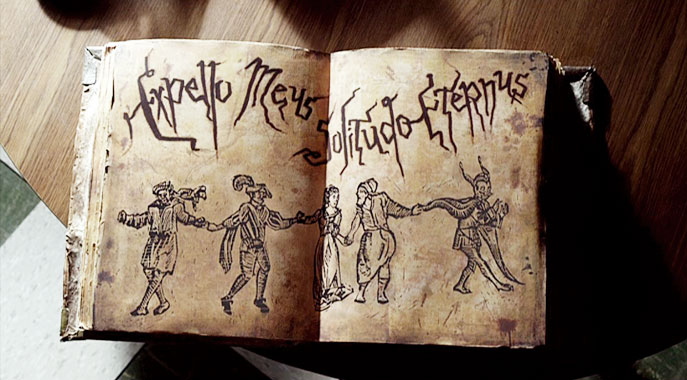 Expello Meus Solitudo Eternus